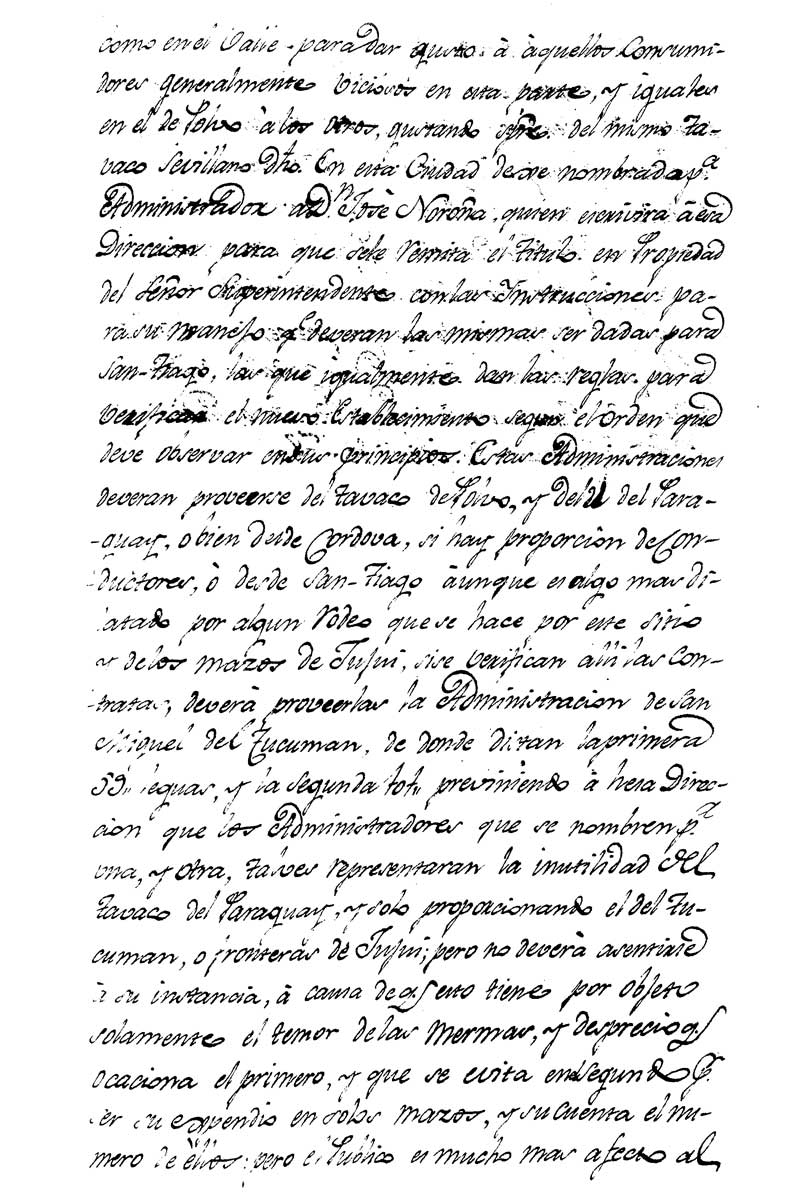 como en el Valle, para dar gusto à àquellos Consumi-
dores generalmente viciosos en esta parte, y iguales
en el de Polvo à los otros, gustando spre. del mismo Ta-
vaco Sevillano dho. En esta Ciudad dexe nombrada pa.
Administrador a Dn. Josè Noroña, quien escrivira à esa
Direccion para que sele remita el titulo en Propiedad
del Señor Superintendente con las Instrucciones pa-
ra su manejo qe. deveran las mismas ser dadas para
San-Tiago, las que igualmente dan las reglas para
verificar el nuevo Establecimiento segun el orden que
deve observar en sus principios. Estas Administraciones
deveran proveerse del tavaco de Polvo, y del del Para-
-guay, o bien desde Cordova, si hay proporcion de Con-
ductores, ò desde San-Tiago àunque es algo mas di-
latado por algun rodeo que se hace por este sitio
y de los mazos de Jujui, si se verifican alli las Con-
-tratas, deverà proveerlas la Administracion de San
Miguel del Tucuman, de donde distan la primera
59,, leguas, y la segunda 101,, previniendo à hesa Direc-
cion que los Administradores que se nombren pa.
una, y otra, talves representaran la inutilidad del
tavaco del Paraguay, y solo proporcionando el del Tu-
cuman, o fronteras de Jujui; pero no deverà asentirse
à su instancia, à causa de q. esto tiene por objeto
solamente el temor de las Mermas, y desprecio q.
ocaciona el primero, y que se evita en el segundo p.
ser su expendio en solos mazos, y su cuenta el nu-
mero de èllos: pero el Publico es mucho mas afecto al